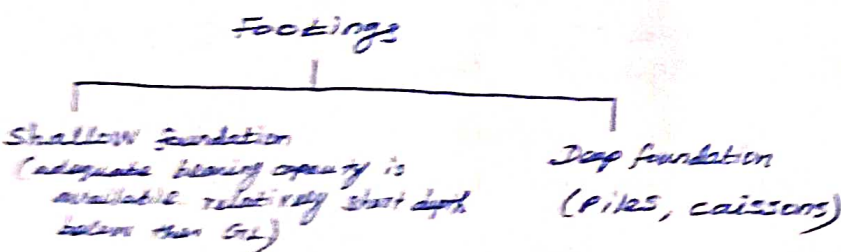 Footings
Shallow foundation
(adequate bearing capacity is
available relatively short depth
below than GL)
Deep foundation
(Piles, caissons)